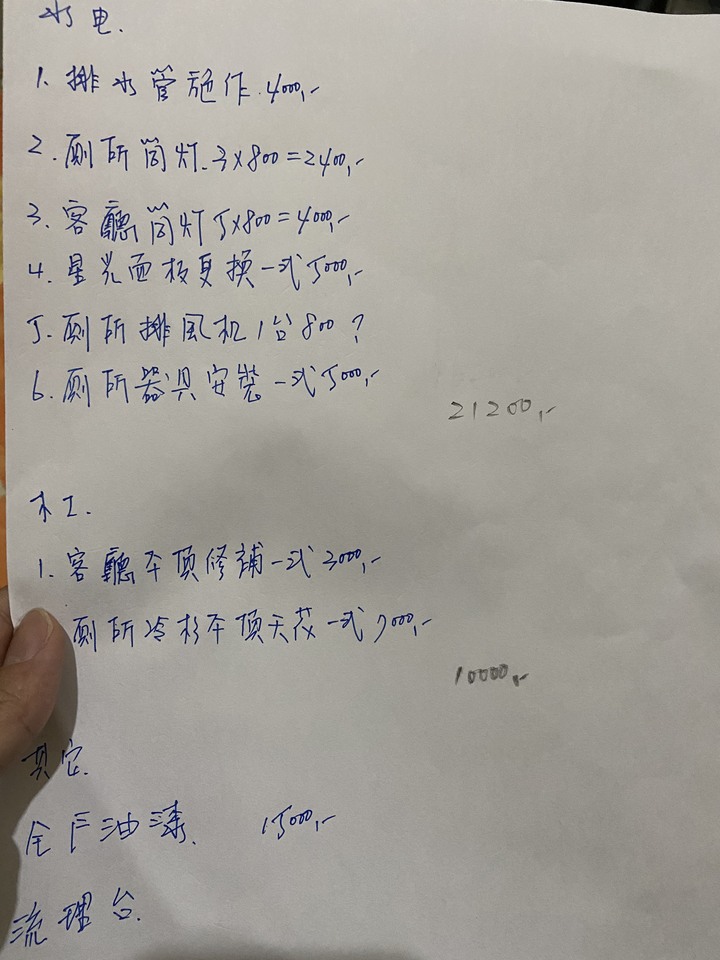 水电.
1. 排水管施作. 4000,-
2. 厕所筒灯. 3x800=2400,-
3. 客廳筒灯 5x800=4000,-
4. 星光面板更换一式 5000,-
5. 厕所排風机 1台 800?
6. 厕所器具安裝一式 5000,-
21200,-
木工.
1. 客廳平頂修補一式 3000,-
厕所冷杉平頂天花一式 7000,-
10000,-
其它.
全戶油漆. 15000,-
流理台.